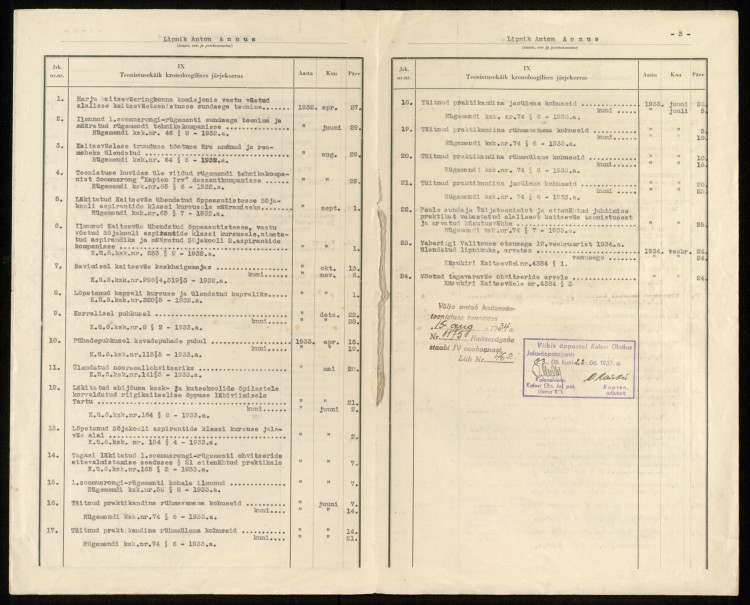 Lipnik Anton Annus
Jrk.
nr.nr.
IX
Teenistuskäik kronoloogilises järjekorras
Aasta
Kuu
Päev
1. Harju Kaitseväeringkonna komisjonis vastu võetud
alalisse kaitseväeteenistusse sundaega teenima...... 1932. apr. 27.
2. Ilmunud 1.soomusrongi-rügementi sundaega teenima ja
määratud rügemendi tehnikakompaniisse .............. " juuni 29.
Rügemendi ksk. nr. 46 § 8 - 1932.a.
3. Kaitseväelase truuduse tõotuse ära andnud ja rea-
meheks ülendatud ................ " aug. 29.
Rügemendi ksk.nr. 64 § 5 - 1932.a.
4. Teenistuse huvides üle viidud rügemendi tehnikakompa-
nist Soomusrong "Kapten Irv" dessantkompaniisse ..... " " 29.
Rügemendi ksk.nr.65 § 6 - 1932.a.
5. Lähetatud Kaitseväe Ühendatud Õppeasutistesse Sõja-
kooli aspirantide klassi kursusele määramiseks....... " sept. 1.
Rügemendi ksk.nr.65 § 7 - 1932.a.
6. Ilmunud Kaitseväe Ühendatud Õppeasutistesse, vastu
võetud Sõjakooli aspirantide klassi kursusele, nimeta-
tud aspirandiks ja määratud Sõjakooli 2.aspirantide
kompaniisse ................ " " 1.
K.Ü.Õ.ksk. nr. 253 § 2 - 1932.a.
7. Ravimisel kaitseväe keskhaigemajas ................ " okt. 13.
kuni.... " nov. 6.
K.Ü.Õ.ksk.nr.298§4,319§3 - 1932.a.
8. Lõpetanud kaprali kursuse ja ülendatud kapraliks..... " " 1.
K.Ü.Õ.ksk.nr.320§5 - 1932.a.
9. Korralisel puhkusel ................ " dets. 22.
kuni.... " " 28.
K.Ü.Õ.ksk.nr. 8 § 2 - 1933.a.
10. Pühadepuhkusel kevadepühade puhul ................ 1933. apr. 16.
kuni.... " " 19.
K.Ü.Õ.ksk.nr.115§3 - 1933.a.
11. Ülendatud nooremallohvitseriks ................ " mai 20.
K.Ü.Õ.ksk.nr.141§5 - 1933.a.
12. Lähetatud abijõuna kesk- ja kutsekoolide õpilastele
korraldatud riigikaitselise õppuse läbiviimisele
Tartu ................ " " 21.
kuni.... " juuni 2.
K.Ü.Õ.ksk.nr.164 § 8 - 1933.a.
13. Lõpetanud Sõjakooli aspirantide klassi kursuse jala-
väe alal ................ " " 2.
K.Ü.Õ.ksk. nr. 154 § 4 - 1933.a.
14. Tagasi lähetatud 1.soomusrongi-rügementi ohvitseride
ettevalmistamise seaduses § 21 ettenähtud praktikale " " 7.
K.Ü.Õ.ksk.nr.165 § 3 - 1933.a.
15. 1.soomusrongi-rügementi kohale ilmunud ............ " " 7.
Rügemendi ksk.nr.56 § 8 - 1933.a.
16. Täitnud praktikandina rühmavanema kohuseid ........ " juuni 7.
kuni.... " " 14.
Rügemendi ksk.nr.74 § 6 - 1933.a.
17. Täitnud praktikandina rühmaülema kohuseid ......... " " 14.
kuni.... " " 21.
Rügemendi ksk.nr.74 § 6 - 1933.a.
- 3 -
Lipnik Anton Annus
Jrk.
nr.nr.
IX
Teenistuskäik kronoloogilises järjekorras
Aasta
Kuu
Päev
18. Täitnud praktikandina jaoülema kohuseid ............ 1933. juuni
kuni .... " juuli 5.
Rügemendi ksk. nr.74 § 6 - 1933.a.
19. Täitnud praktikandina rühmavanema kohuseid ......... " " 5.
kuni .... " " 10.
Rügemendi ksk.nr.74 § 6 - 1933.a.
20. Täitnud praktikandina rühmaülema kohuseid .......... " " 10.
kuni .... " "
Rügemendi ksk.nr.74 § 6 - 1933.a.
21. Täitnud praktikandina jaoülema kohuseid ............ " " 20.
kuni .... " "
Rügemendi ksk.nr.74 § 6 - 1933.a.
22. Peale sundaja väljateenimist ja ettenähtud juhtimise
praktikat vabastatud alalisest kaitseväe teenistusest
ja arvatud käsutusväkke ................ " "
Rügemendi ksk.nr.74 § 7 - 1933.a.
23. Vabariigi Valitsuse otsusega 19.veebruarist 1934.a.
ülendatud lipnikuks, arvates ................ 1934. veebr. 24.
vanusega ..... " " 24.
Käsukiri Kaitseväele nr.4384 § 1.
24. Võetud tagavaraväe ohvitseride arvele .............. " " 24.
Käsukiri Kaitseväele nr.4384 § 3
Välja antud kaitseväe-
teenistuse tunnistus
15. aug 1934.a.
Kaitsevägede
staabi IV osakonnast
Leht Nr. 462
Viibis õppusel Kalevi Üksikus
Jalaväepataljonis
06. kuni 23. 06. 1937.a.
Kolonelleitn.
Kalevi Üks. Jal. pat.
ülema t. t.
Kapten,
adjutant